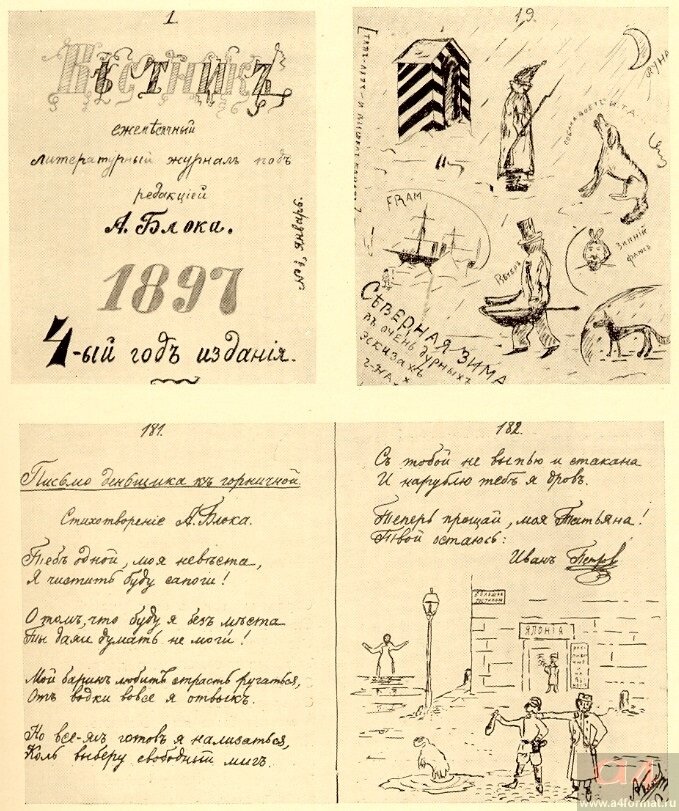 1.
Вѣстникъ
ежемѣсячный
литературный журналъ подъ
редакціей
А. Блока.
№1, январь.
1897
4-ый годъ изданія.
19.
ЛУНА
FRAM
ЗИМНІЙ
СѢВЕРНАЯ ЗИМА
ВЪ ОЧЕНЬ ДУРНЫХЪ
ЭСКИЗАХЪ
181.
Письмо деньщика къ горничной
Стихотвореніе А. Блока.
Тебѣ одной, моя невѣста,
Я чистить буду сапоги!
О томъ, что буду я безъ мѣста
Ты даже думать не моги!
Мой баринъ любитъ страсть ругаться,
Отъ водки вовсе я отвыкъ.
Но все-жъ готовъ я нализаться,
Коль выберу свободный мигъ.
182.
Съ тобой не выпью и стакана
И нарублю тебѣ я дровъ.
Теперь прощай, моя Татьяна!
Твой остаюсь:
Иванъ Петров
ЯПОНІЯ
a4
www.a4format.ru